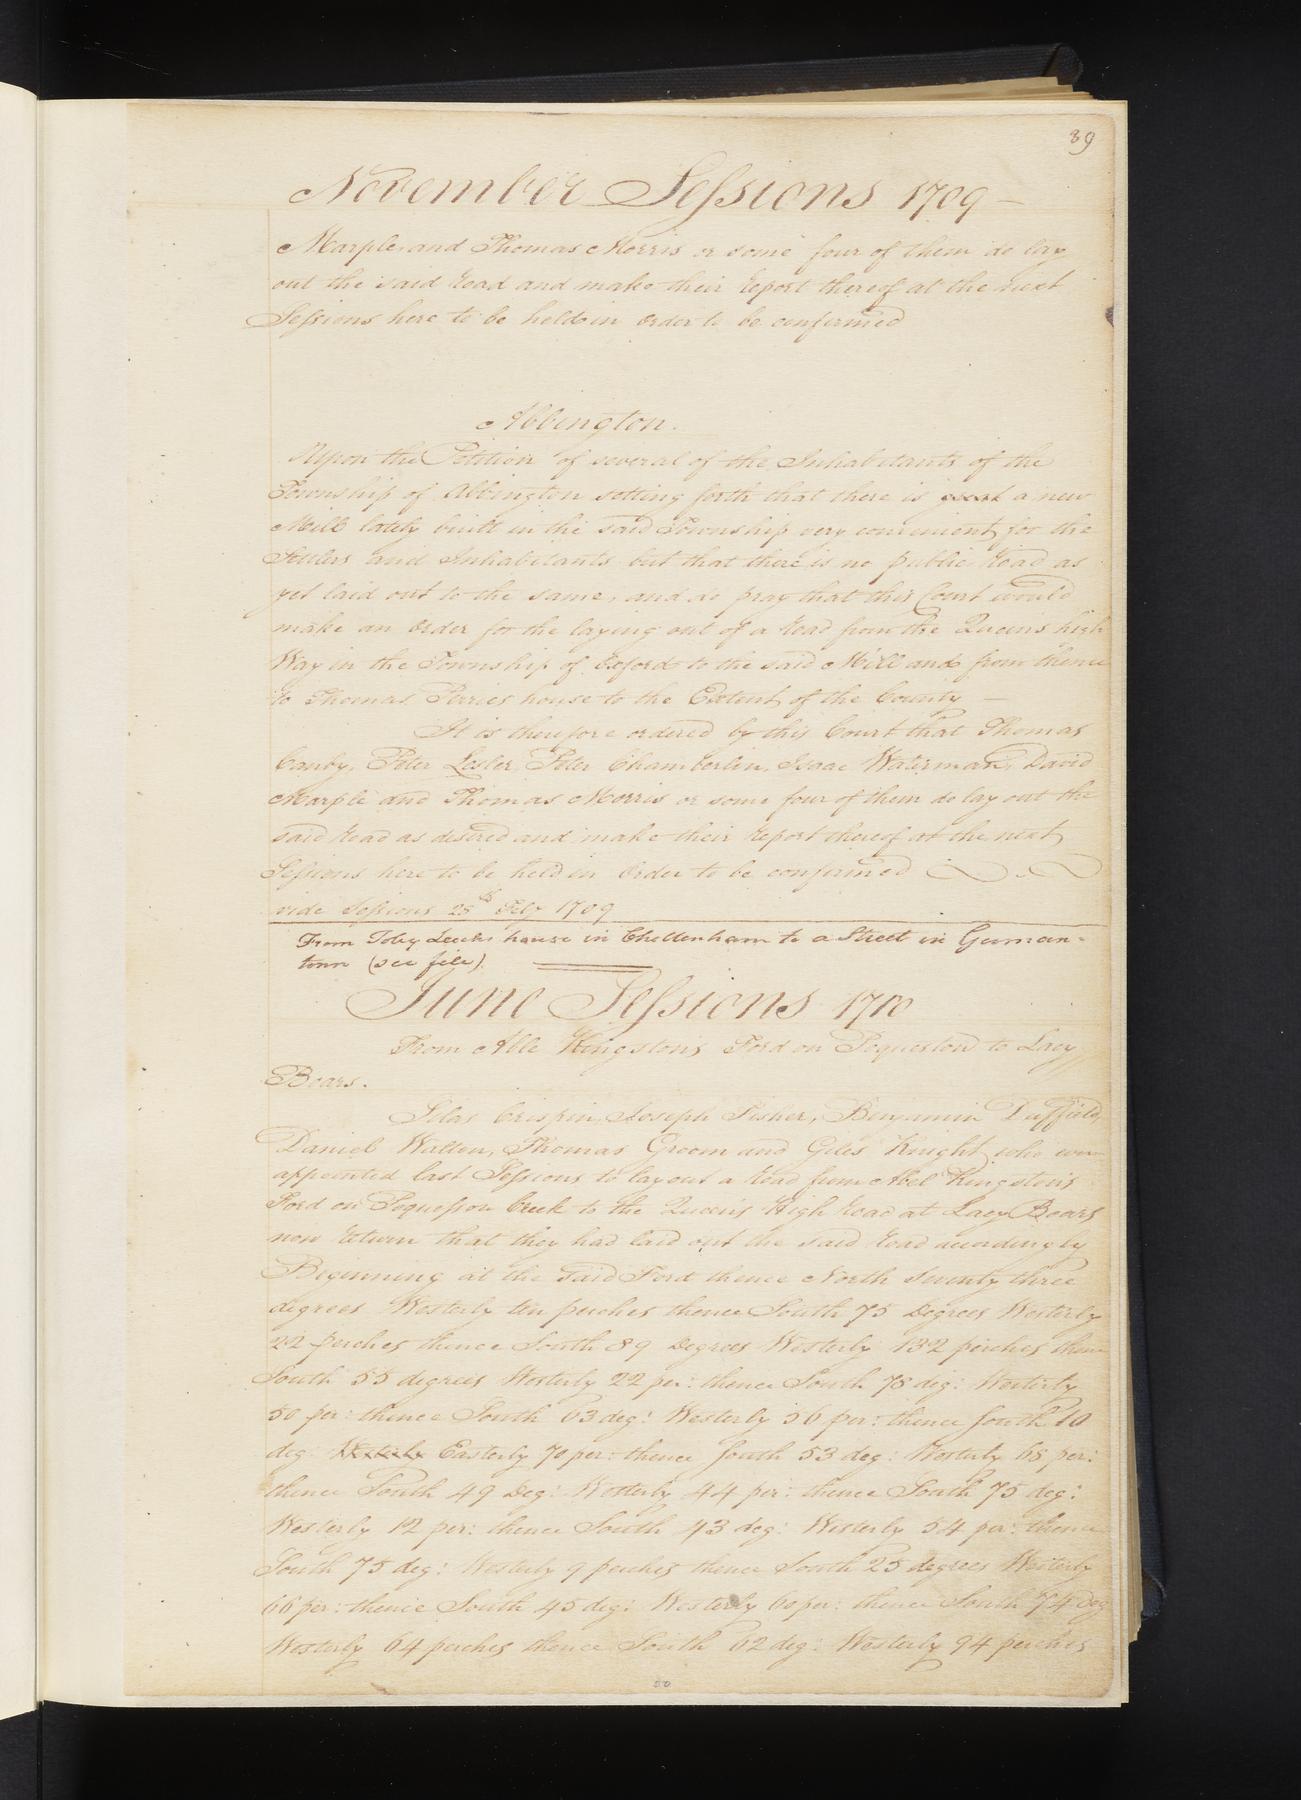 39
November Sessions 1709 —
Marple, and Thomas Morris or some four of them do lay
out the said Road and make their Report thereof at the next
Sessions here to be held in Order to be confirmed
Abbington.
Upon the Petition of several of the Inhabitants of the
Township of Abbington setting forth that there is a new
Mill lately built in the said Township very convenient for the
Settlers and Inhabitants but that there is no public Road as
yet laid out to the same, and do pray that this Court would
make an Order for the laying out of a Road from the Queens high
Way in the Township of Oxford to the said Mill and from thence
to Thomas Parries house to the Extent of the County —
It is therefore ordered by this Court that Thomas
Canby, Peter Lester, Peter Chamberlin, Isaac Waterman, David
Marple and Thomas Morris or some four of them do lay out the
said Road as desired and make their Report thereof at the next
Sessions here to be held in Order to be confirmed
vide Sessions 28th Feby 1709
From Toby Leechs house in Cheltenham to a Street in German-
town (see file).
June Sessions 1710
From Able Kingstons Ford on Poqueston to Lacy
Boars.
Silas Crispin, Joseph Fisher, Benjamin Duffield,
Daniel Walton, Thomas Groom and Giles Knight who were
appointed last Sessions to lay out a Road from Abel Kingston's
Ford on Poquesson Creek to the Queen's High Road at Lacy Boars
now Return that they had laid out the said Road accordingly
Beginning at the said Ford thence North Seventy three
degrees Westerly ten perches thence South 75 Degrees Westerly
22 perches thence South 89 Degrees Westerly 132 perches thence
South 55 degrees Westerly 22 per: thence South 78 deg: Westerly
50 per: thence South 63 deg: Westerly 56 per: thence South 10
deg: Westerly Easterly 70 per: thence South 53 deg: Westerly 68 per:
thence South 49 Deg: Westerly 44 per: thence South 75 deg:
Westerly 12 per: thence South 43 deg: Westerly 54 per: thence
South 75 deg: Westerly 9 perches thence South 25 degrees Westerly
66 per: thence South 45 deg: Westerly 60 per: thence South 74 Deg
Westerly 64 perches thence South 62 deg: Westerly 94 perches